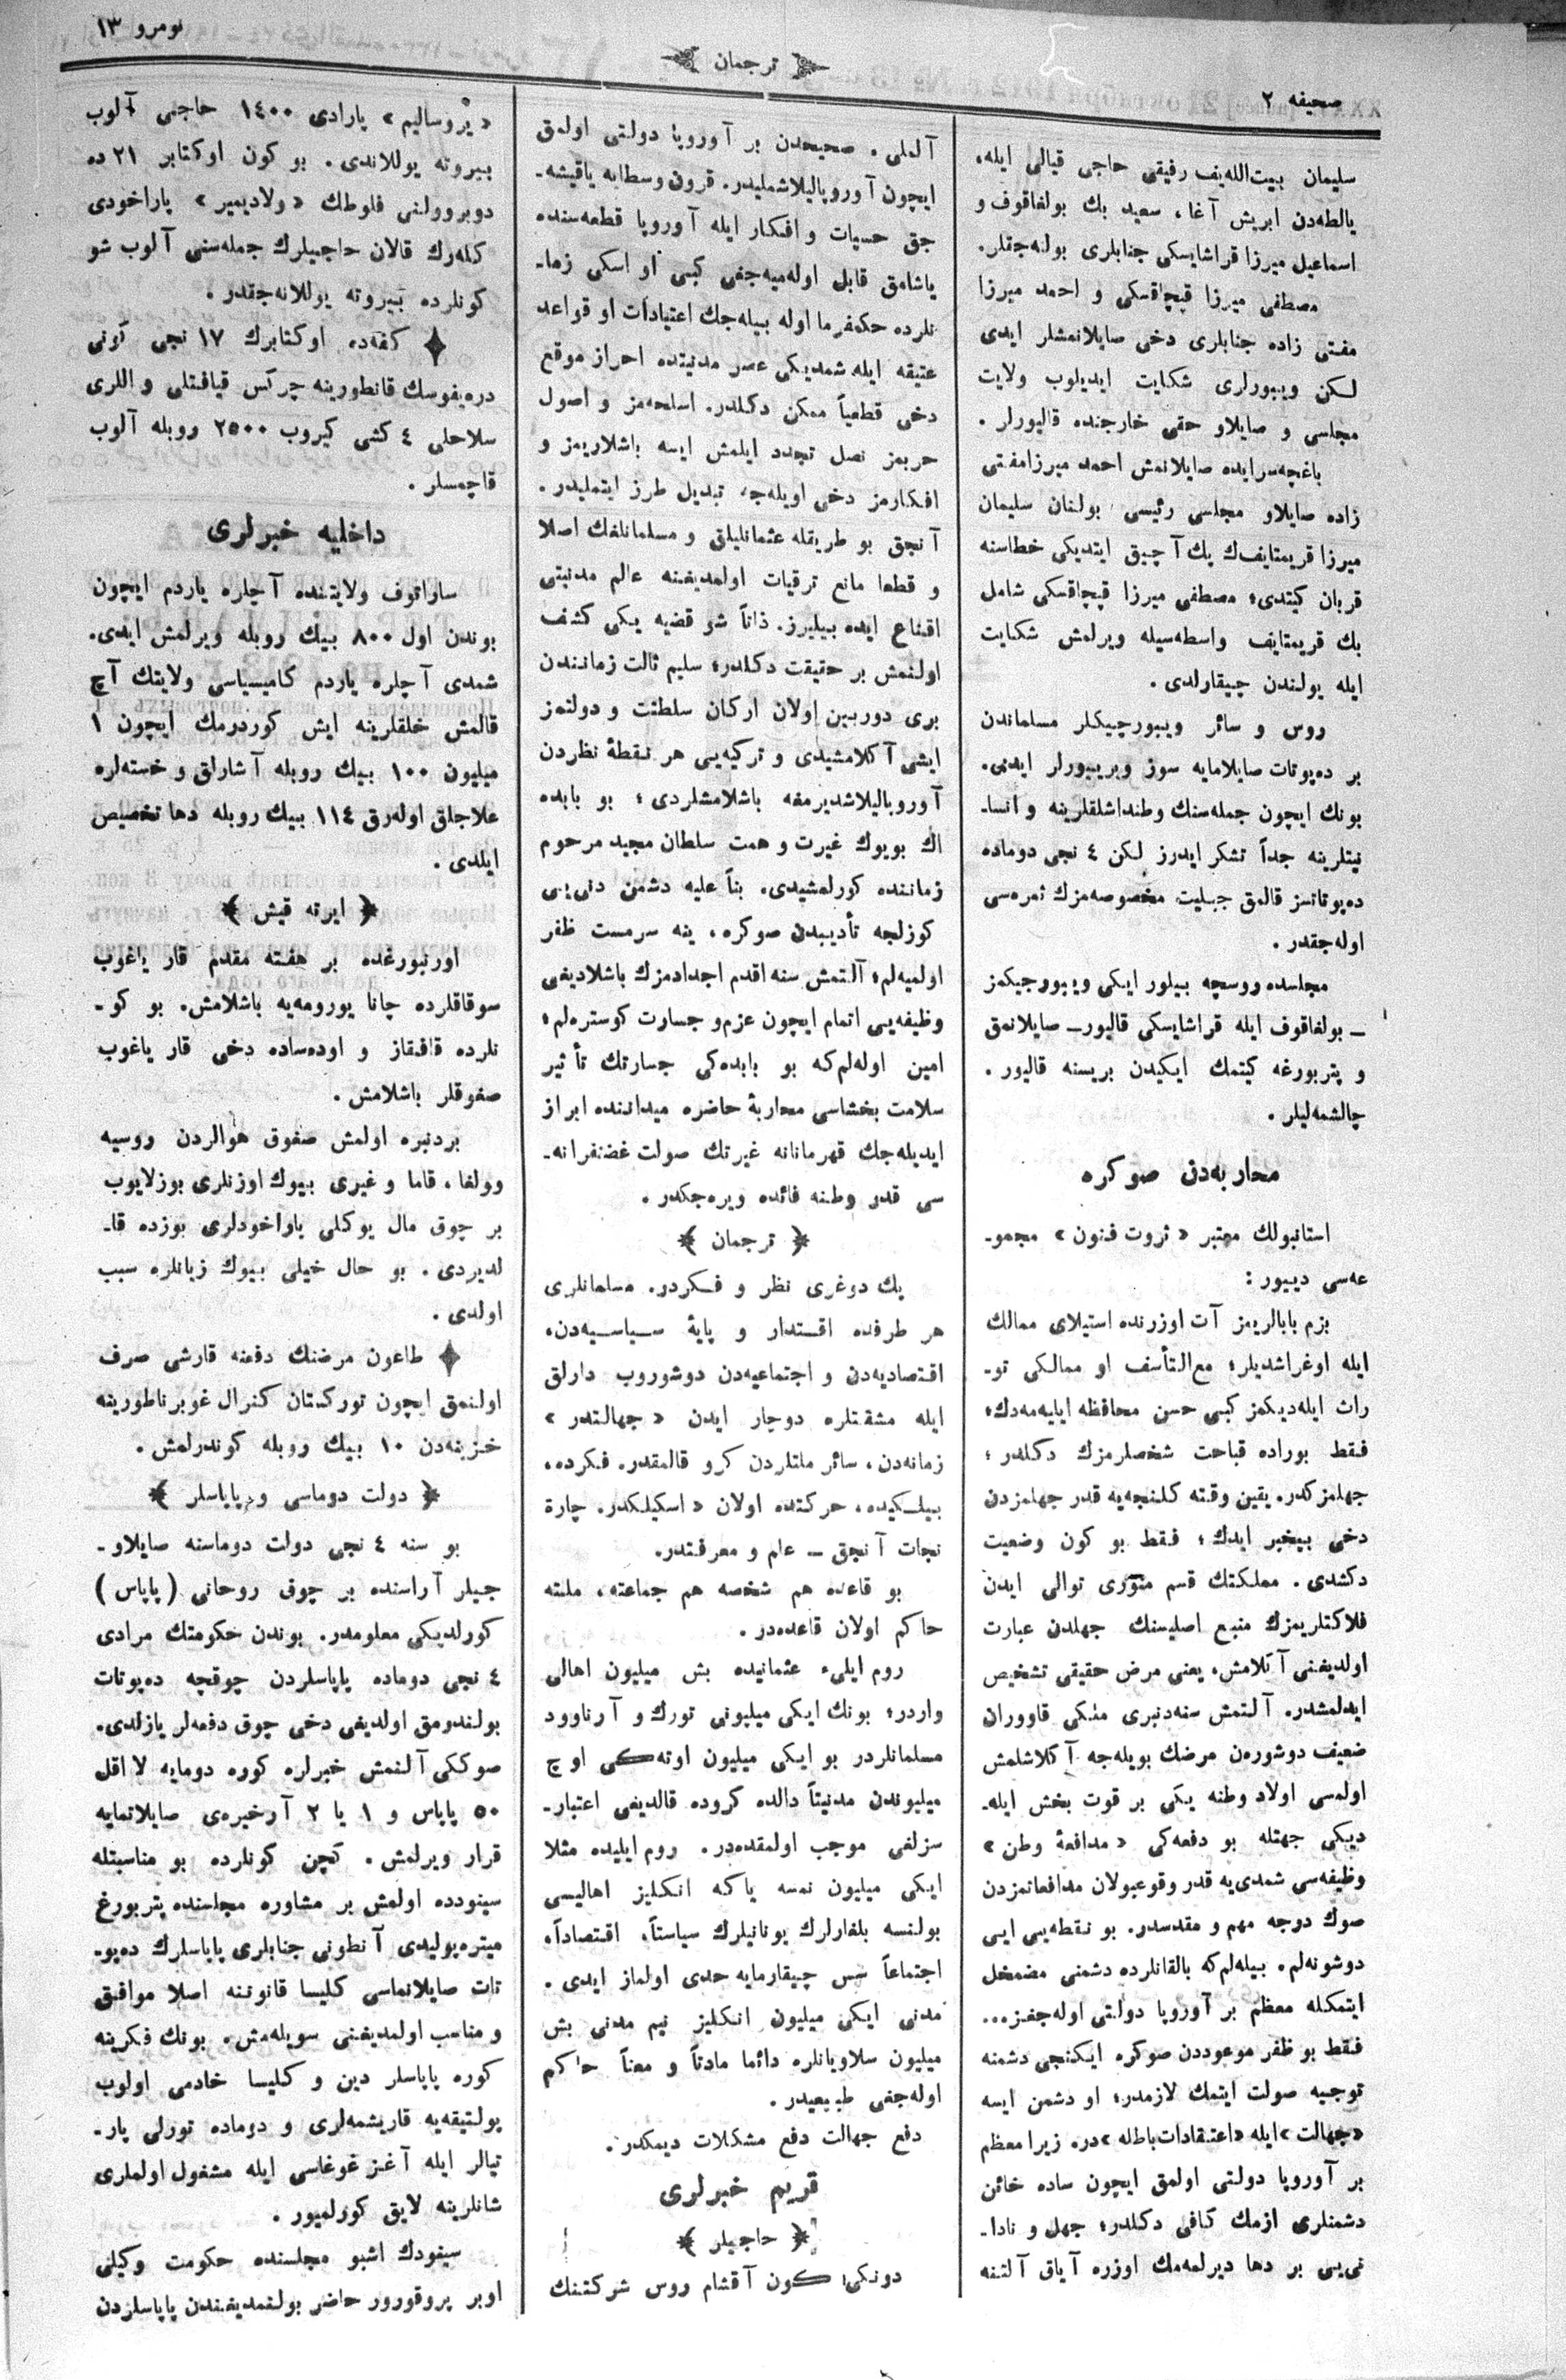 نومرو ١٣
ترجمان
صحيفه ٢
سليمان بيت‌الله‌يف رفيقى حاجى قيالى ايله،
يالطه‌دن ابريش آغا، سعيد بك بولغاقوف و
اسماعيل ميرزا قراشايسكى جنابلرى بولنه‌جقلر.
مصطفى ميرزا قپچاقسكى و احمد ميرزا
مفتى زاده جنابلرى دخى صايلانمشلر ايدى
لكن ويبورلرى شكايت ايديلوب ولايت
مجلسى و صايلاو حقى خارجنده قاليورلر .
باغچه‌سرايده صايلانمش احمد ميرزا مفتى
زاده صايلاو مجلسى رئيسى بولنان سليمان
ميرزا قريمتايف‌ك پك آچيق ايتديكى خطاسنه
قربان كيتدى؛ مصطفى ميرزا قپچاقسكى شامل
بك قريمتايف واسطه‌سيله ويرلمش شكايت
ايله يولندن چيقارلدى .
روس و سائر ويبورچيكلر مسلماندن
بر ده‌پوتات صايلامايه سوز ويرييورلر ايدى.
بونك ايچون جمله‌سنك وطنداشلقلرينه و انسا-
نيتلرينه جداً تشكر ايدرز لكن ٤ نجى دوماده
ده‌پوتاتسز قالمق جبليت مخصوصه‌مزك ثمره‌سى
اوله‌جقدر .
مجلسده روسچه بيلور ايكى ويبورجيكمز
ــ بولغاقوف ايله قراشايسكى قاليور ــ صايلانمق
و پتربورغه كيتمك ايكيدن بريسنه قاليور .
چالشمه‌ليلر .
محاربه‌دن صوكره
استانبولك معتبر « ثروت فنون » مجمو-
عه‌سى دييور :
بزم بابالريمز آت اوزرنده استيلاى ممالك
ايله اوغراشديلر؛ مع‌التأسف او ممالكى تو-
راث ايله‌ديكمز كبى حسن محافظه ايليه‌مه‌دك؛
فقط بوراده قباحت شخصلرمزك دكلدر ؛
جهلمزكدر. يقين وقته كلنجه‌يه قدر جهلمزدن
دخى بيخبر ايدك ؛ فقط بو كون وضعيت
دكشدى . مملكتك قسم منورى توالى ايدن
فلاكتلريمزك منبع اصليسنك جهلدن عبارت
اولديغنى آكلامش، يعنى مرض حقيقى تشخيص
ايدلمشدر. آلتمش سنه‌دنبرى ملكى قاووران
ضعيف دوشورن مرضك بويله‌جه آكلاشلمش
اولمسى اولاد وطنه يكى بر قوت بخش ايله-
ديكى جهتله بو دفعه‌كى « مدافعۀ وطن »
وظيفه‌سى شمدى‌يه قدر وقوعبولان مدافعاتمزدن
صوك درجه مهم و مقدسدر. بو نقطه‌يى ايى
دوشونه‌لم. بيله‌لم كه بالقانلرده دشمنى مضمحل
ايتمكله معظم بر آوروپا دولتى اوله‌جغز...
فقط بو ظفر موعوددن صوكره ايكنجى دشمنه
توجيه صولت ايتمك لازمدر؛ او دشمن ايسه
«جهالت» ايله «اعتقادات باطله» در. زيرا معظم
بر آوروپا دولتى اولمق ايچون ساده خائن
دشمنلرى ازمك كافى دكلدر؛ جهل و نادا-
نى‌يى بر دها ديرلمه‌مك اوزره آياق آلتنه
آلملى . صحيحدن بر آوروپا دولتى اولمق
ايچون آوروپاليلاشمليدر. قرون وسطايه ياقيشه-
جق حسيات و افكار ايله آوروپا قطعه‌سنده
ياشامق قابل اوله‌ميه‌جغى كبى او اسكى زما-
نلرده حكمفرما اوله بيله‌جك اعتيادات او قواعد
عتيقه ايله شمديكى عصر مدنيتده احراز موقع
دخى قطعياً ممكن دكلدر. اسلحه‌مز و اصول
حربمز نصل تجدد ايلمش ايسه باشلاريمز و
افكارمز دخى اويله‌جه تبديل طرز ايتمليدر .
آنجق بو طريقله عثمانليلق و مسلمانلغك اصلا
و قطعا مانع ترقيات اولمديغنه عالم مدنيتى
اقناع ايده بيليرز. ذاتاً شو قضيه يكى كشف
اولنمش بر حقيقت دكلدر؛ سليم ثالث زماندن
برى دوربين اولان اركان سلطنت و دولتمز
ايشى آكلامشيدى و تركيه‌يى هر نقطۀ نظردن
آوروپاليلاشديرمغه باشلامشلردى ؛ بو بابده
اك بويوك غيرت و همت سلطان مجيد مرحوم
زماننده كورلمشيدى. بناً عليه دشمن دنى‌يى
كوزلجه تأديبدن صوكره، ينه سرمست ظفر
اولميه‌لم؛ آلتمش سنه اقدم اجدادمزك باشلاديغى
وظيفه‌يى اتمام ايچون عزم و جسارت كوستره‌لم؛
امين اوله‌لم كه بو بابده‌كى جسارتك تأثير
سلامت بخشاسى محاربۀ حاضره ميداننده ابراز
ايديله‌جك قهرمانانه غيرتك صولت غضنفرانه-
سى قدر وطنه فائده ويره‌جكدر .
﴿ ترجمان ﴾
پك دوغرى نظر و فكردر. مسلمانلرى
هر طرفده اقتدار و پايۀ سياسيه‌دن،
اقتصاديه‌دن و اجتماعيه‌دن دوشوروب دارلق
ايله مشقتلره دوچار ايدن « جهالتدر »
زمانه‌دن، سائر ملتلردن كرو قالمقدر. فكرده،
بيلكيده، حركتده اولان « اسكيلكدر. چارۀ
نجات آنجق ــ علم و معرفتدر.
بو قاعده هم شخصه هم جماعته، ملته
حاكم اولان قاعده‌در .
روم ايلىء عثمانيده بش ميليون اهالى
واردر؛ بونك ايكى ميليونى تورك و آرناوود
مسلمانلردر بو ايكى ميليون اوته‌كى اوچ
ميليوندن مدنيتاً دالده كروده قالديغى اعتبار-
سزلغى موجب اولمقده‌در. روم ايليده مثلا
ايكى ميليون نمسه ياكه انكليز اهاليسى
بولنسه بلغارلرك يونانيلرك سياستاً، اقتصاداً،
اجتماعاً سس چيقارمايه حدى اولماز ايدى .
مدنى ايكى ميليون انكليز نيم مدنى بش
ميليون سلاويانلره دائما مادتاً و معناً حاكم
اوله‌جغى طبيعيدر .
دفع جهالت دفع مشكلات ديمكدر.
قريم خبرلرى
﴿ حاجيلر ﴾
دونكى كون آقشام روس شركتنك
« يروساليم » پارادى ١٤٠٠ حاجى آلوب
بيروته يوللاندى . بو كون اوكتابر ٢١ ده
دوبروولنى فلوطك « ولاديمير » پاراخودى
كله‌رك قالان حاجيلرك جمله‌سنى آلوب شو
كونلرده بيروته يوللانه‌جقدر .
كفه‌ده اوكتابرك ١٧ نجى كونى
دره‌يفوسك قانطورينه چركس قيافتلى و اللرى
سلاحلى ٤ كشى كيروب ٢٥٠٠ روبله آلوب
قاچمسلر .
داخليه خبرلرى
ساراتوف ولايتنده آچلره ياردم ايچون
بوندن اول ٨٠٠ بيك روبله ويرلمش ايدى.
شمدى آچلره ياردم كاميسياسى ولايتك آچ
قالمش خلقلرينه ايش كوردرمك ايچون ١
ميليون ١٠٠ بيك روبله آشارلق و خسته‌لره
علاجلق اوله‌رق ١١٤ بيك روبله دها تخصيص
ايلدى .
﴿ ايرته قيش ﴾
اورنبورغده بر هفته مقدم قار ياغوب
سوقاقلرده چانا يورومه‌يه باشلامش. بو كو-
نلرده قافقاز و اوده‌ساده دخى قار ياغوب
صغوقلر باشلامش .
بردنبره اولمش صغوق هوالردن روسيه
وولغا، قاما و غيرى بيوك اوزنلرى بوزلايوب
بر چوق مال يوكلى پاراخودلرى بوزده قا-
لديردى . بو حال خيلى بيوك زيانلره سبب
اولدى .
طاعون مرضنك دفعنه قارشى صرف
اولنمق ايچون توركستان كنرال غوبرناطورينه
خزينه‌دن ١٠ بيك روبله كوندرلمش .
﴿ دولت دوماسى و پاپاسلر ﴾
بو سنه ٤ نجى دولت دوماسنه صايلاو-
جيلر آراسنده بر چوق روحانى ( پاپاس )
كورلديكى معلومدر. بوندن حكومتك مرادى
٤ نجى دوماده پاپاسلردن چوقچه ده‌پوتات
بولندرمق اولديغى دخى چوق دفعه‌لر يازلدى.
صوككى آلنمش خبرلره كوره دومايه لااقل
٥٠ پاپاس و ١ يا ٢ آرخيره‌ى صايلانمايه
قرار ويرلمش . كچن كونلرده بو مناسبتله
سينودده اولمش بر مشاوره مجلسنده پتربورغ
ميتره‌پوليدى آنطونى جنابلرى پاپاسلرك ده‌پو-
تات صايلانماسى كليسا قانوننه اصلا موافق
و مناسب اولمديغنى سويله‌مش. بونك فكرينه
كوره پاپاسلر دين و كليسا خادمى اولوب
پولتيقه‌يه قاريشمه‌لرى و دوماده تورلى پار-
تيالر ايله آغز غوغاسى ايله مشغول اولملرى
شانلرينه لايق كورلميور .
سينودك اشبو مجلسنده حكومت وكيلى
اوبر پروقورور حاضر بولنمديغندن پاپاسلردن